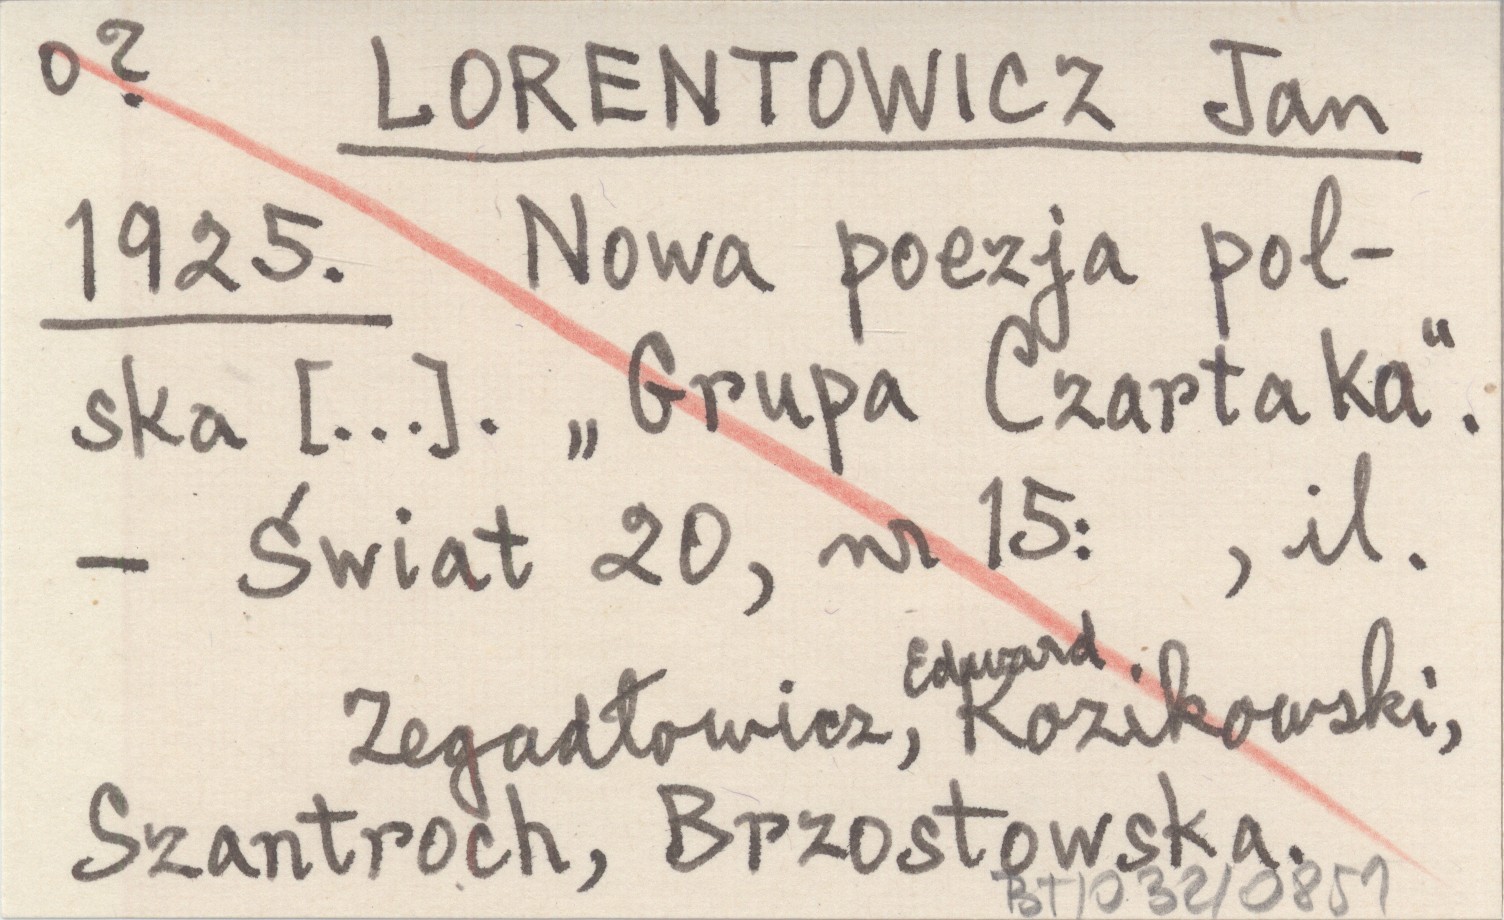 o? LORENTOWICZ Jan
1925. Nowa poezja pol-
ska [...]. „Grupa Czartaka".
— Świat 20, nr 15: , il.
Edward
Zegadłowicz, Kozikowski,
Szantroch, Brzostowska.
BT/032/0851